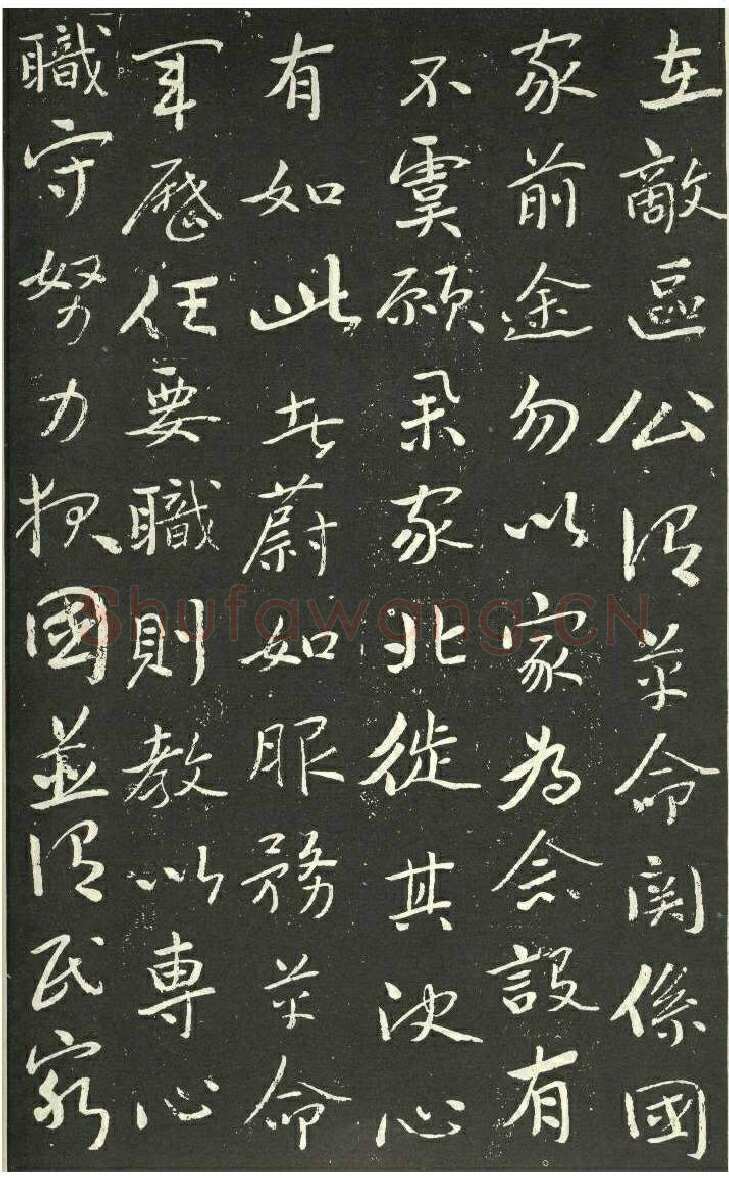 在敵區公謂革命関係國
家前途勿以家為念設有
不虞願家北徙其決心
有如此者蔚如服務革命
軍歷任要職則教以專心
職守努力報國並謂民窮
Shufawang.CN